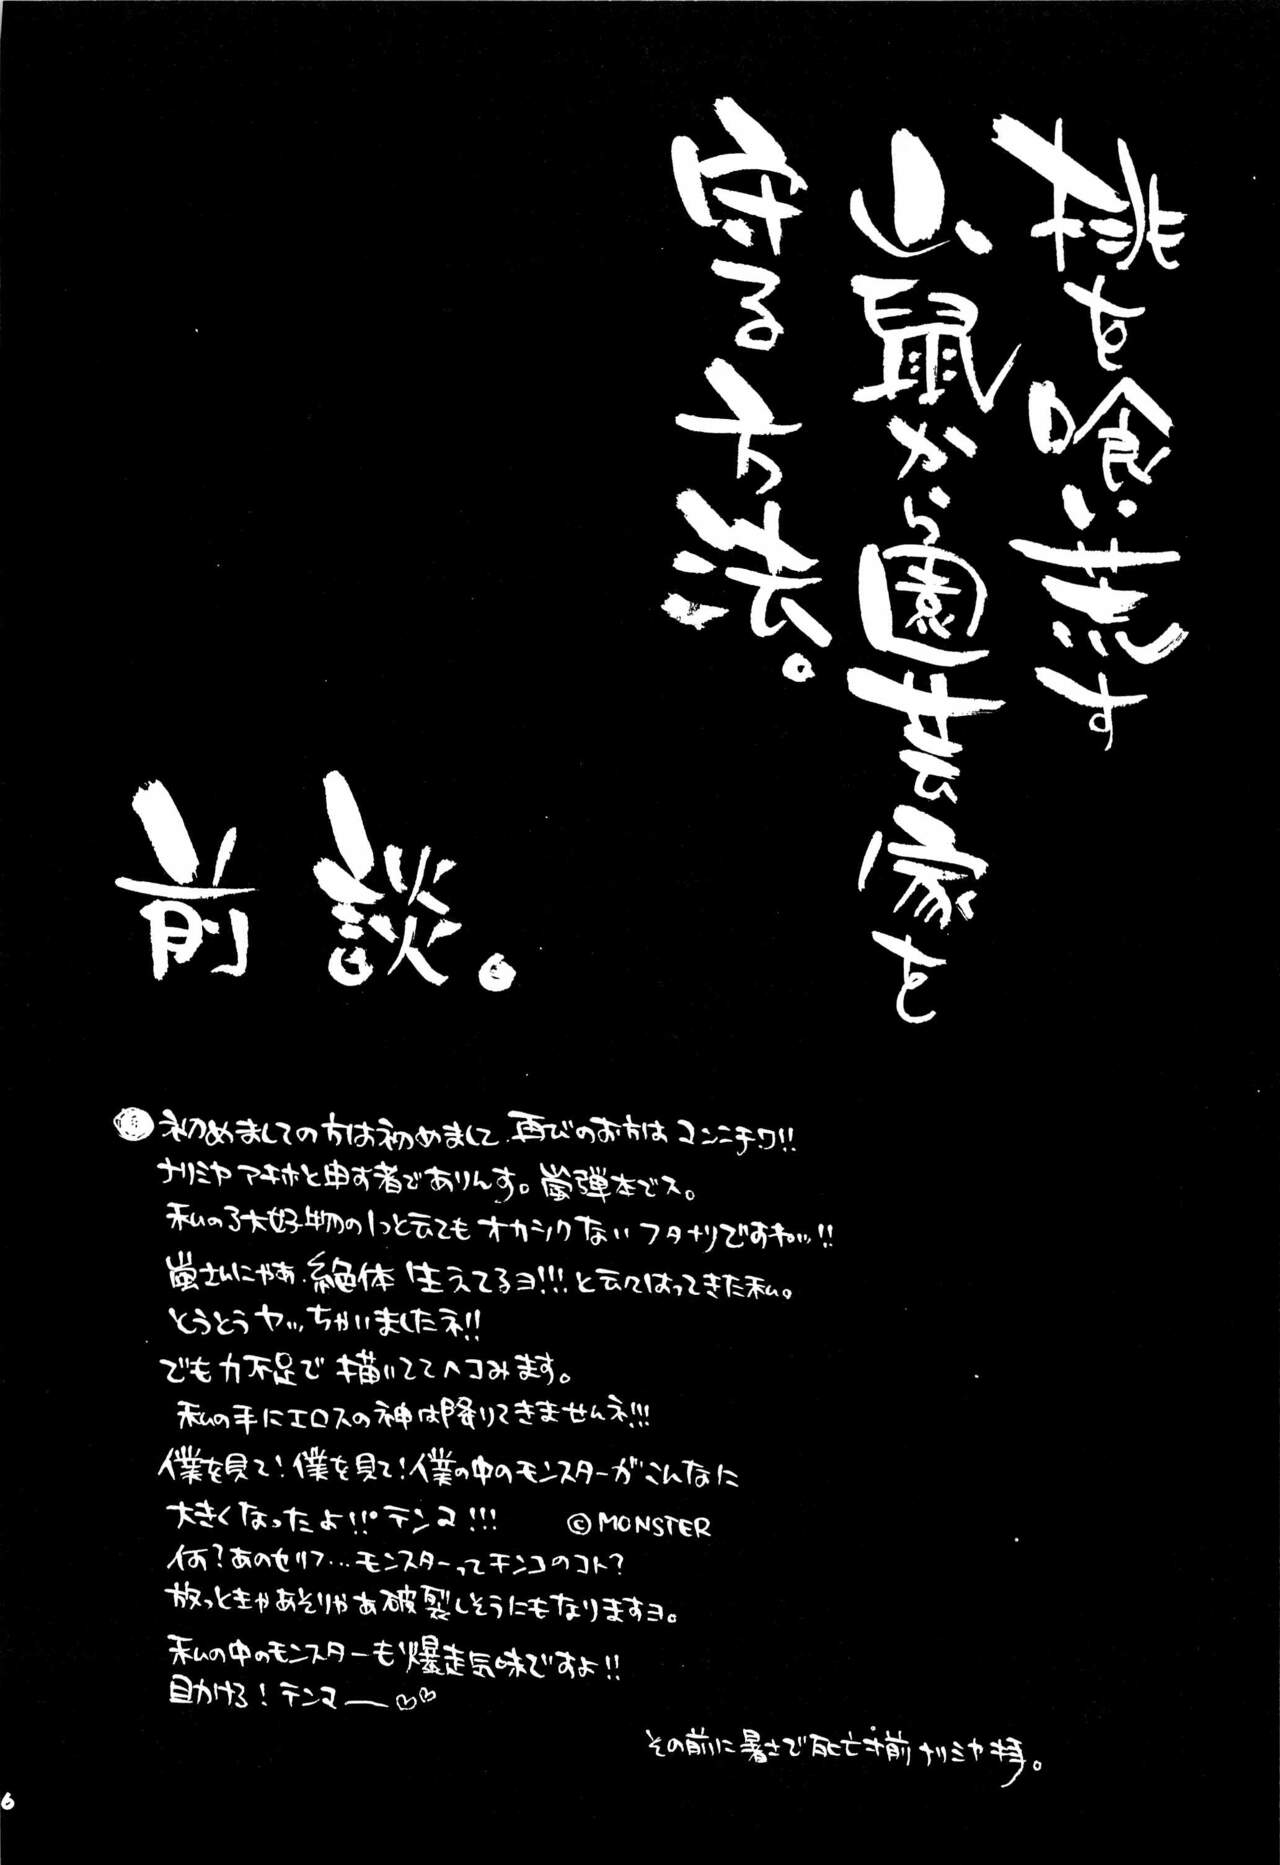 桃を喰い荒す
山鼠から園芸家を
守る方法。
前談。
初めましての方は初めまして、再びのお方はコンニチワ!!
ナリミヤアキホと申す者でありんす。嵐弾本でス。
私の3大好物の1つと云てもオカシクないフタナリですねッ!!
嵐さんにゃあ、絶体生えてるヨ!!!と云くはってきた私。
とうとうヤッちゃいましたネ!!
でも力不足で描いててヘコみます。
私の手にエロスの神は降りてきませんネ!!!
僕を見て!僕を見て!僕の中のモンスターがこんなに
大きくなったよ!!!テンマ!!! ©MONSTER
何?あのセリフ…モンスターってチンコのコト?
放っときゃあそりゃあ破裂しそうにもなりますヨ。
私の中のモンスターも爆走気味ですよ!!
助けろ!テンマー♡♡
その前に暑さで死亡寸前ナリミヤ拝。
6